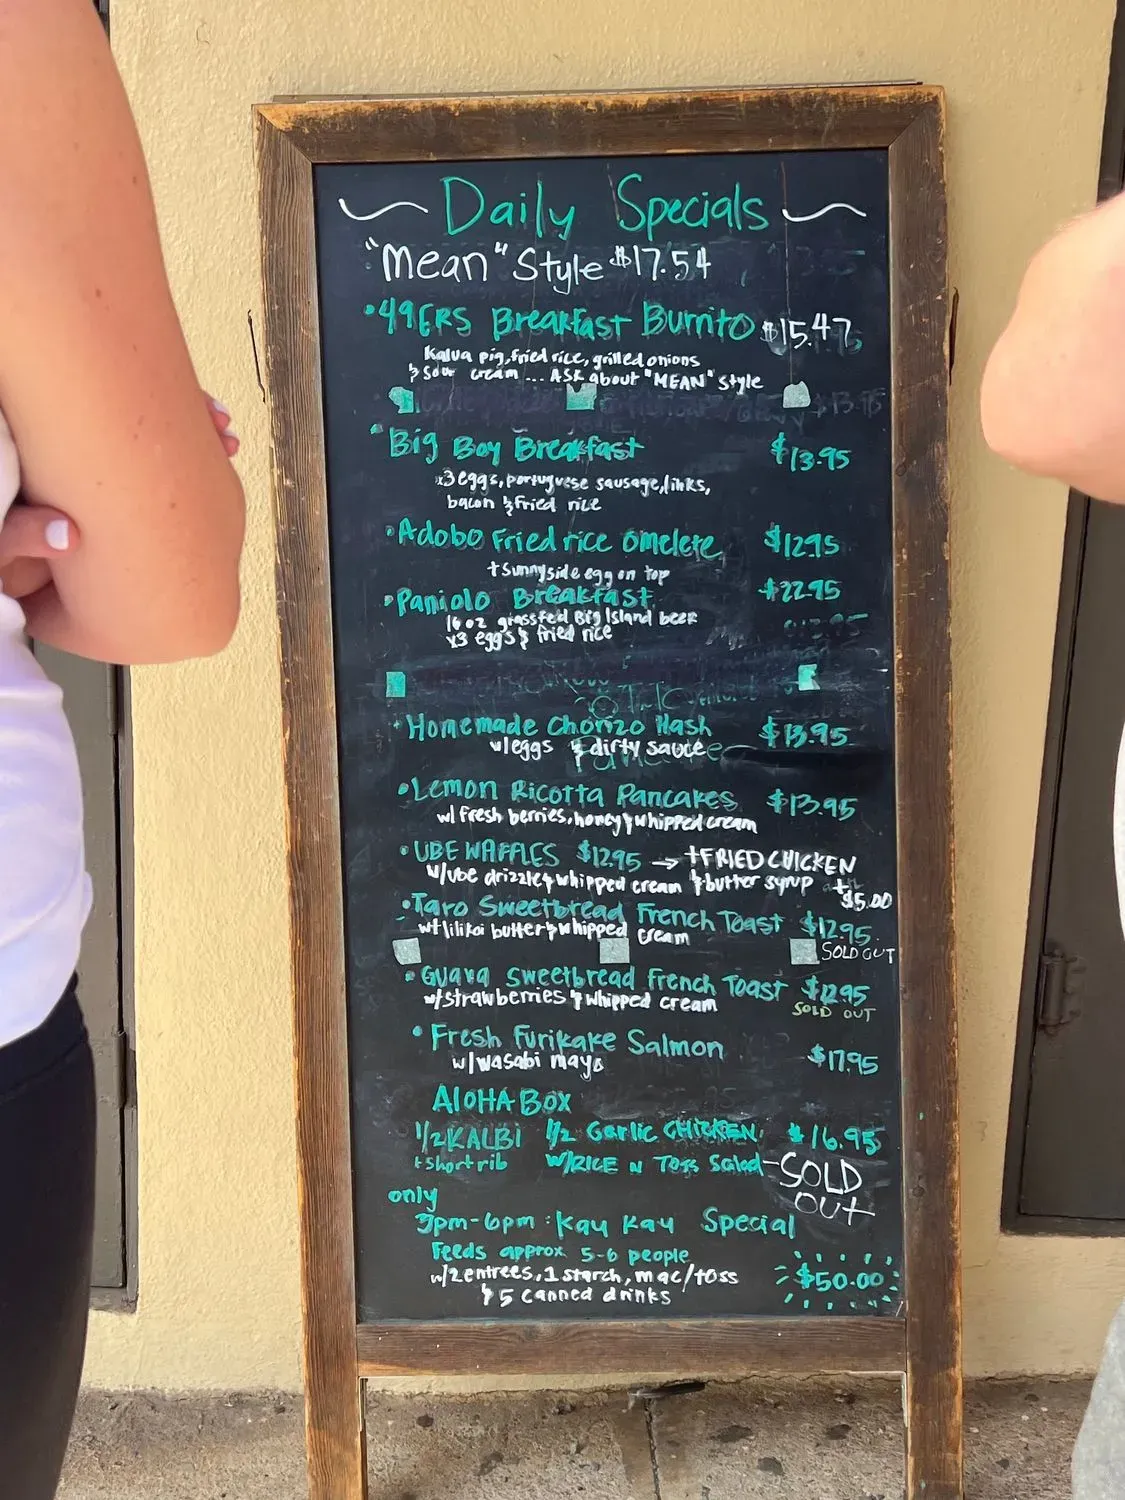 Daily Specials
"Mean" Style $17.54
• 49ERS Breakfast Burrito $15.47
Kalua pig, fried rice, grilled onions
& sour cream ... ASK about "MEAN" style
Big Boy Breakfast $13.95
x3 eggs, portuguese sausage, links,
bacon & fried rice
• Adobo Fried rice omelete $12.95
+ sunnyside egg on top
• Paniolo Breakfast $22.95
16 oz grassfed Big Island beer
x3 eggs & fried rice
• Homemade Chorizo Hash $13.95
w/eggs & dirty sauce
• Lemon Ricotta Pancakes $13.95
w/ fresh berries, honey & whipped cream
• UBE WAFFLES $12.95 → + FRIED CHICKEN
w/ube drizzle & whipped cream & butter syrup + $5.00
• Taro Sweetbread French Toast $12.95
w/ lilikoi butter & whipped cream SOLD OUT
• Guava Sweetbread French Toast $12.95
w/strawberries & whipped cream SOLD OUT
• Fresh Furikake Salmon $17.95
w/wasabi mayo
AlOHA BOX
1/2 KALBI 1/2 Garlic CHICKEN $16.95
+ short rib w/RICE N Toss Salad - SOLD OUt
only
3pm-6pm: Kau Kau Special
Feeds approx 5-6 people
w/2 entrees, 1 starch, mac/toss $50.00
& 5 canned drinks